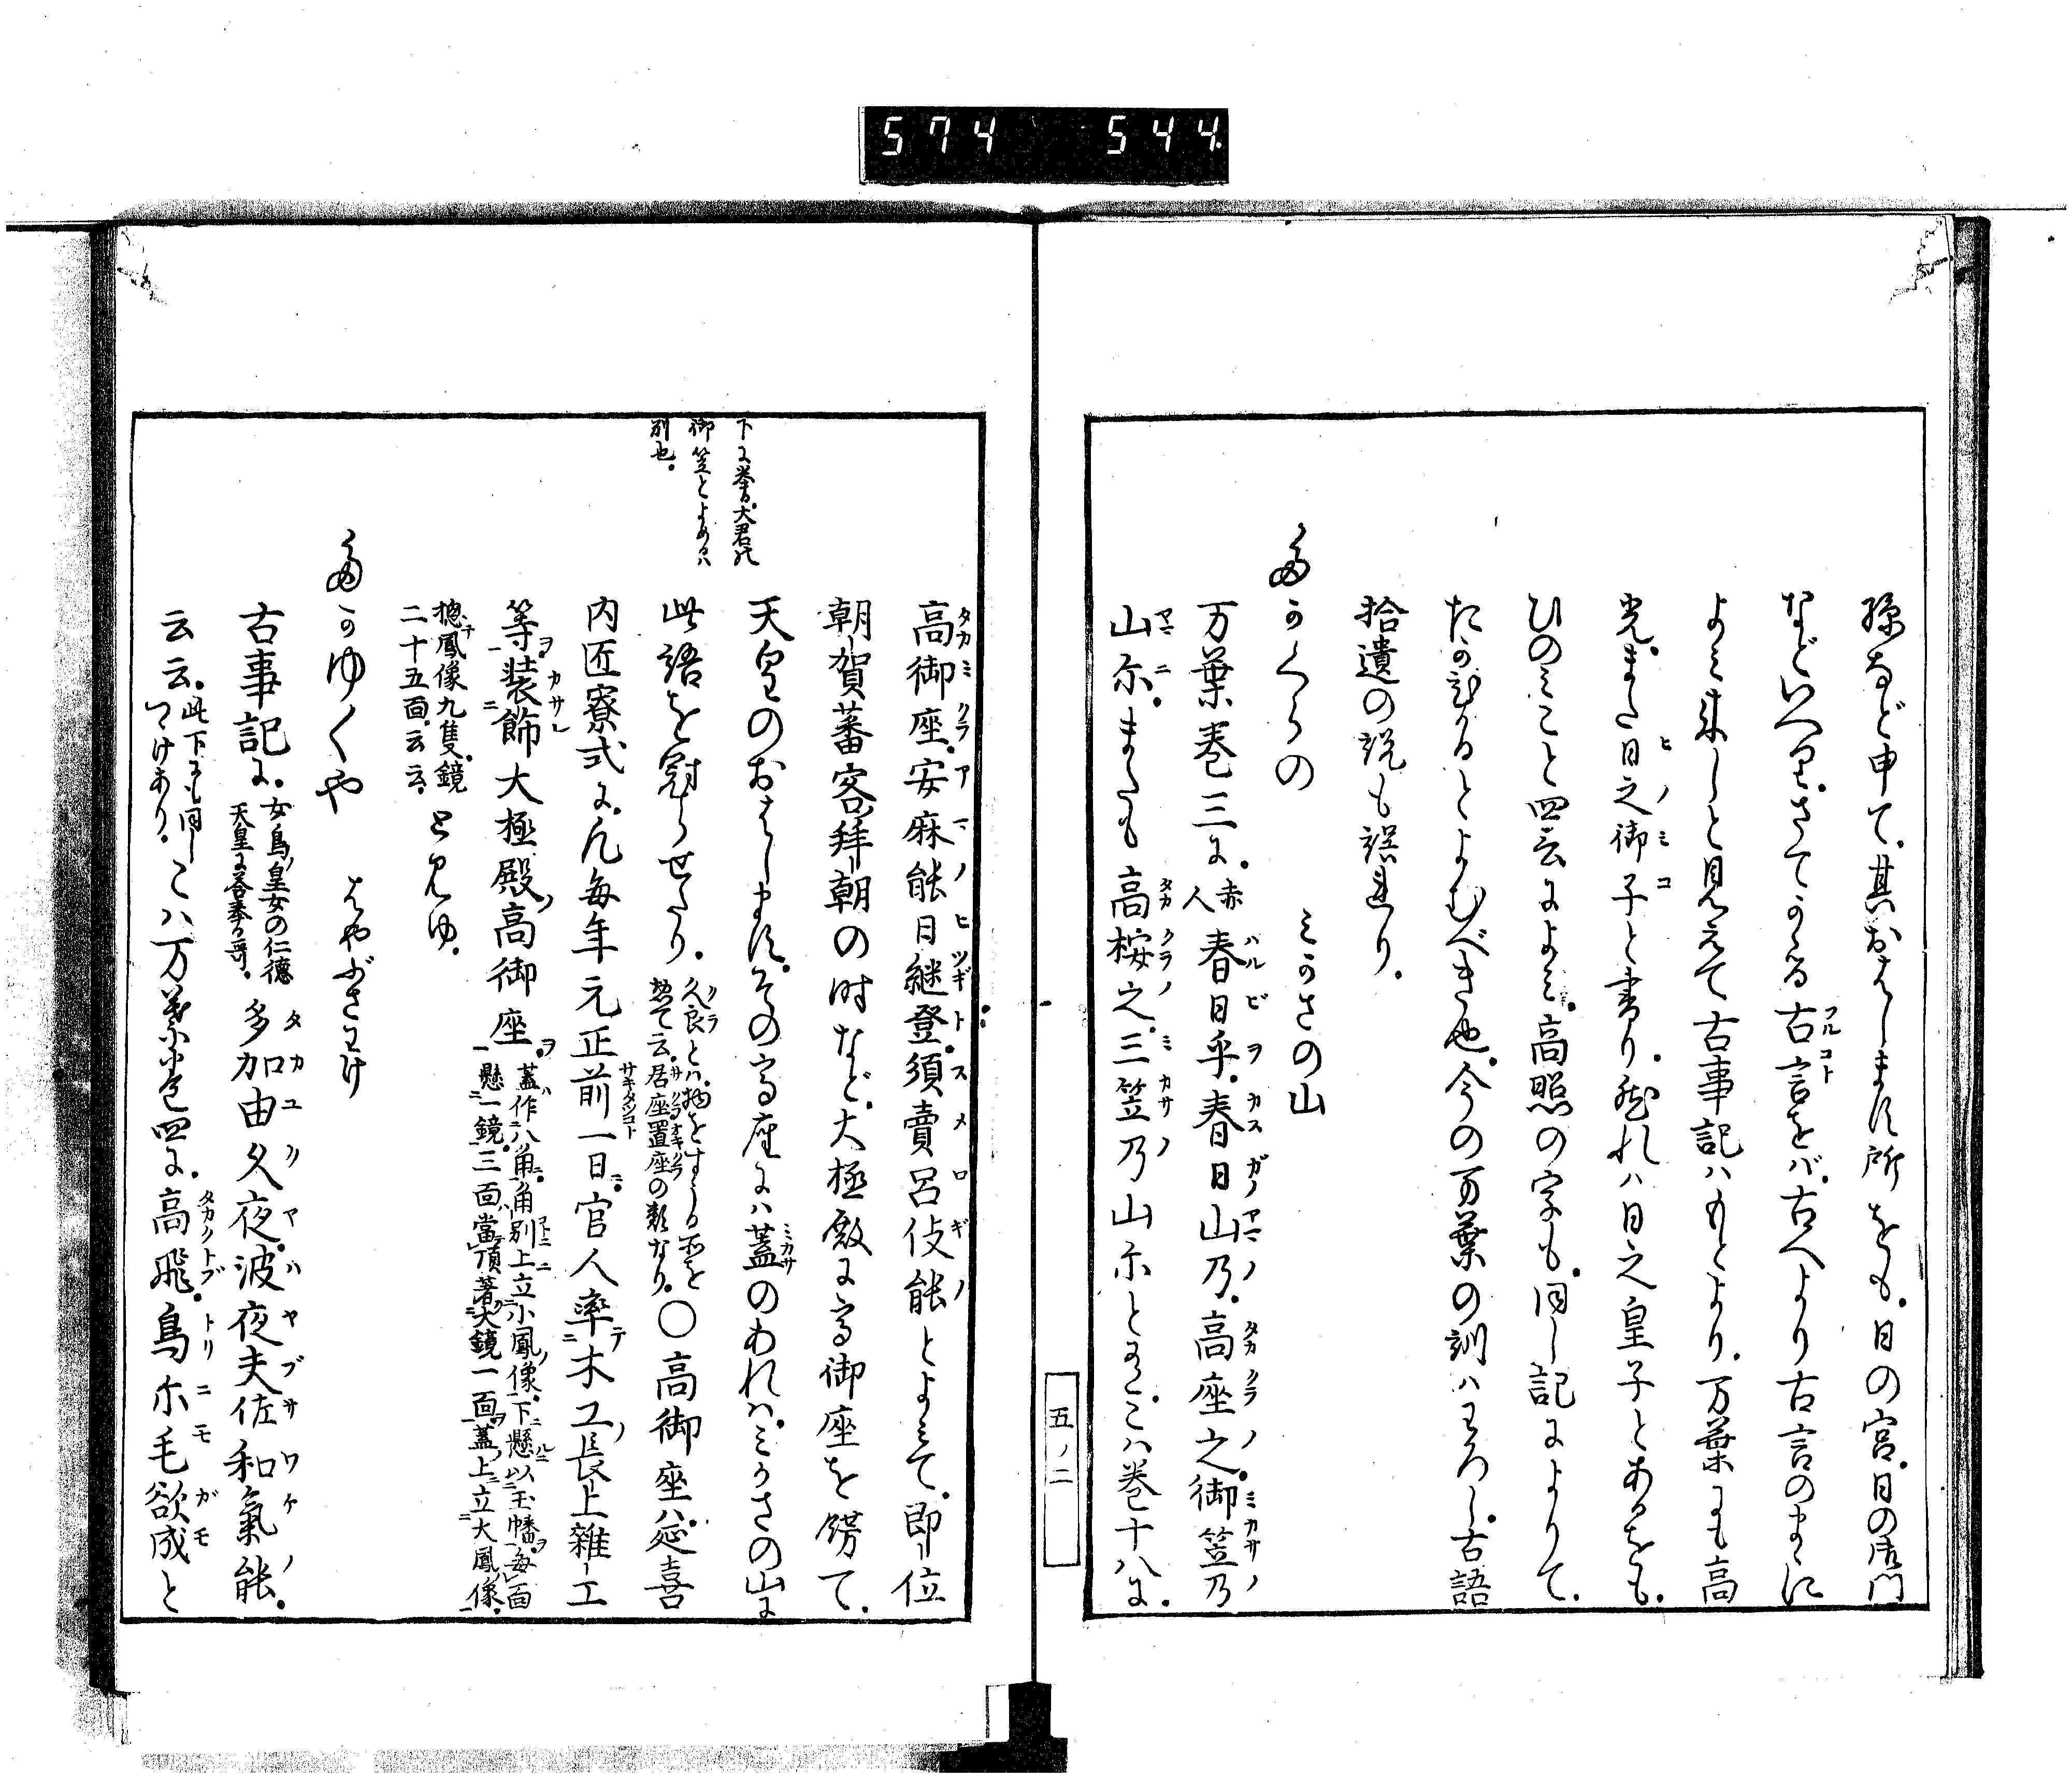 574 544.
孫など申て。其おはしまほ所をも。日の宮。日の御門
などいへり。さてかゝる古言をば。古へより古言のまゝに
よみ来しと見えて古事記ハもとより。万葉にも高
光。また日之御子と書り。然れハ日之皇子とあるをも。
ひのみこと四言によみ。高照の字も。同し記によりて。
たかひかるとよむべき也。今の万葉の訓ハわろし。古語
拾遺の説も誤れり。
たかくらの みかさの山
万葉巻三に。赤人春日乎。春日山乃。高座之。御笠乃
山尓。またも高桉之。三笠乃山尓とあり。こハ巻十八に。
五ノ二
高御座。安麻能日継登。須賣呂伎能とよみて。即位
朝賀蕃客拝朝の時など。大極殿に高御座を餝て。
天皇のおはしまほ。その高座にハ蓋のあれハ。みかさの山に
此語を冠らせたり。久良とハ。物をすうる所を
惣て云。居座置座の類なり。〇高御座ハ。延喜
内匠寮式に。凡毎年元正前一日。官人率木工長上雜工
等。装飾大極殿高御座。蓋作八角。角別上立小鳳像。下懸以玉幡。毎面
懸一鏡三面。當頂著大鏡一面。蓋上立大鳳像。
揔鳳像九隻。鏡
二十五面。云云。と見ゆ。
下に挙る。大君の
御笠とよめるハ
別也。
たかゆくや はやぶさわけ
古事記に。女鳥皇女の仁徳
天皇に答奉る哥。多加由久夜。波夜夫佐和氣能。
云云。此下にも同し
つゝけあり。こハ万葉巻四に。高飛。鳥尓毛欲成と